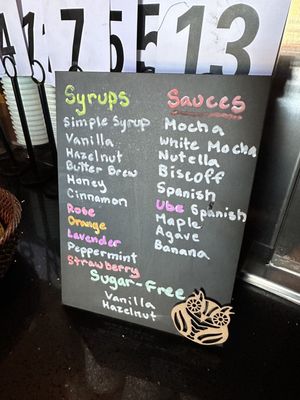 4
1
7
7
5
5
13
Syrups
Simple Syrup
Vanilla
Hazelnut
Butter Brew
Honey
Cinnamon
Rose
Orange
Lavender
Peppermint
Strawberry
Sauces
Mocha
White Mocha
Nutella
Biscoff
Spanish
Ube Spanish
Maple
Agave
Banana
Sugar-Free
Vanilla
Hazelnut